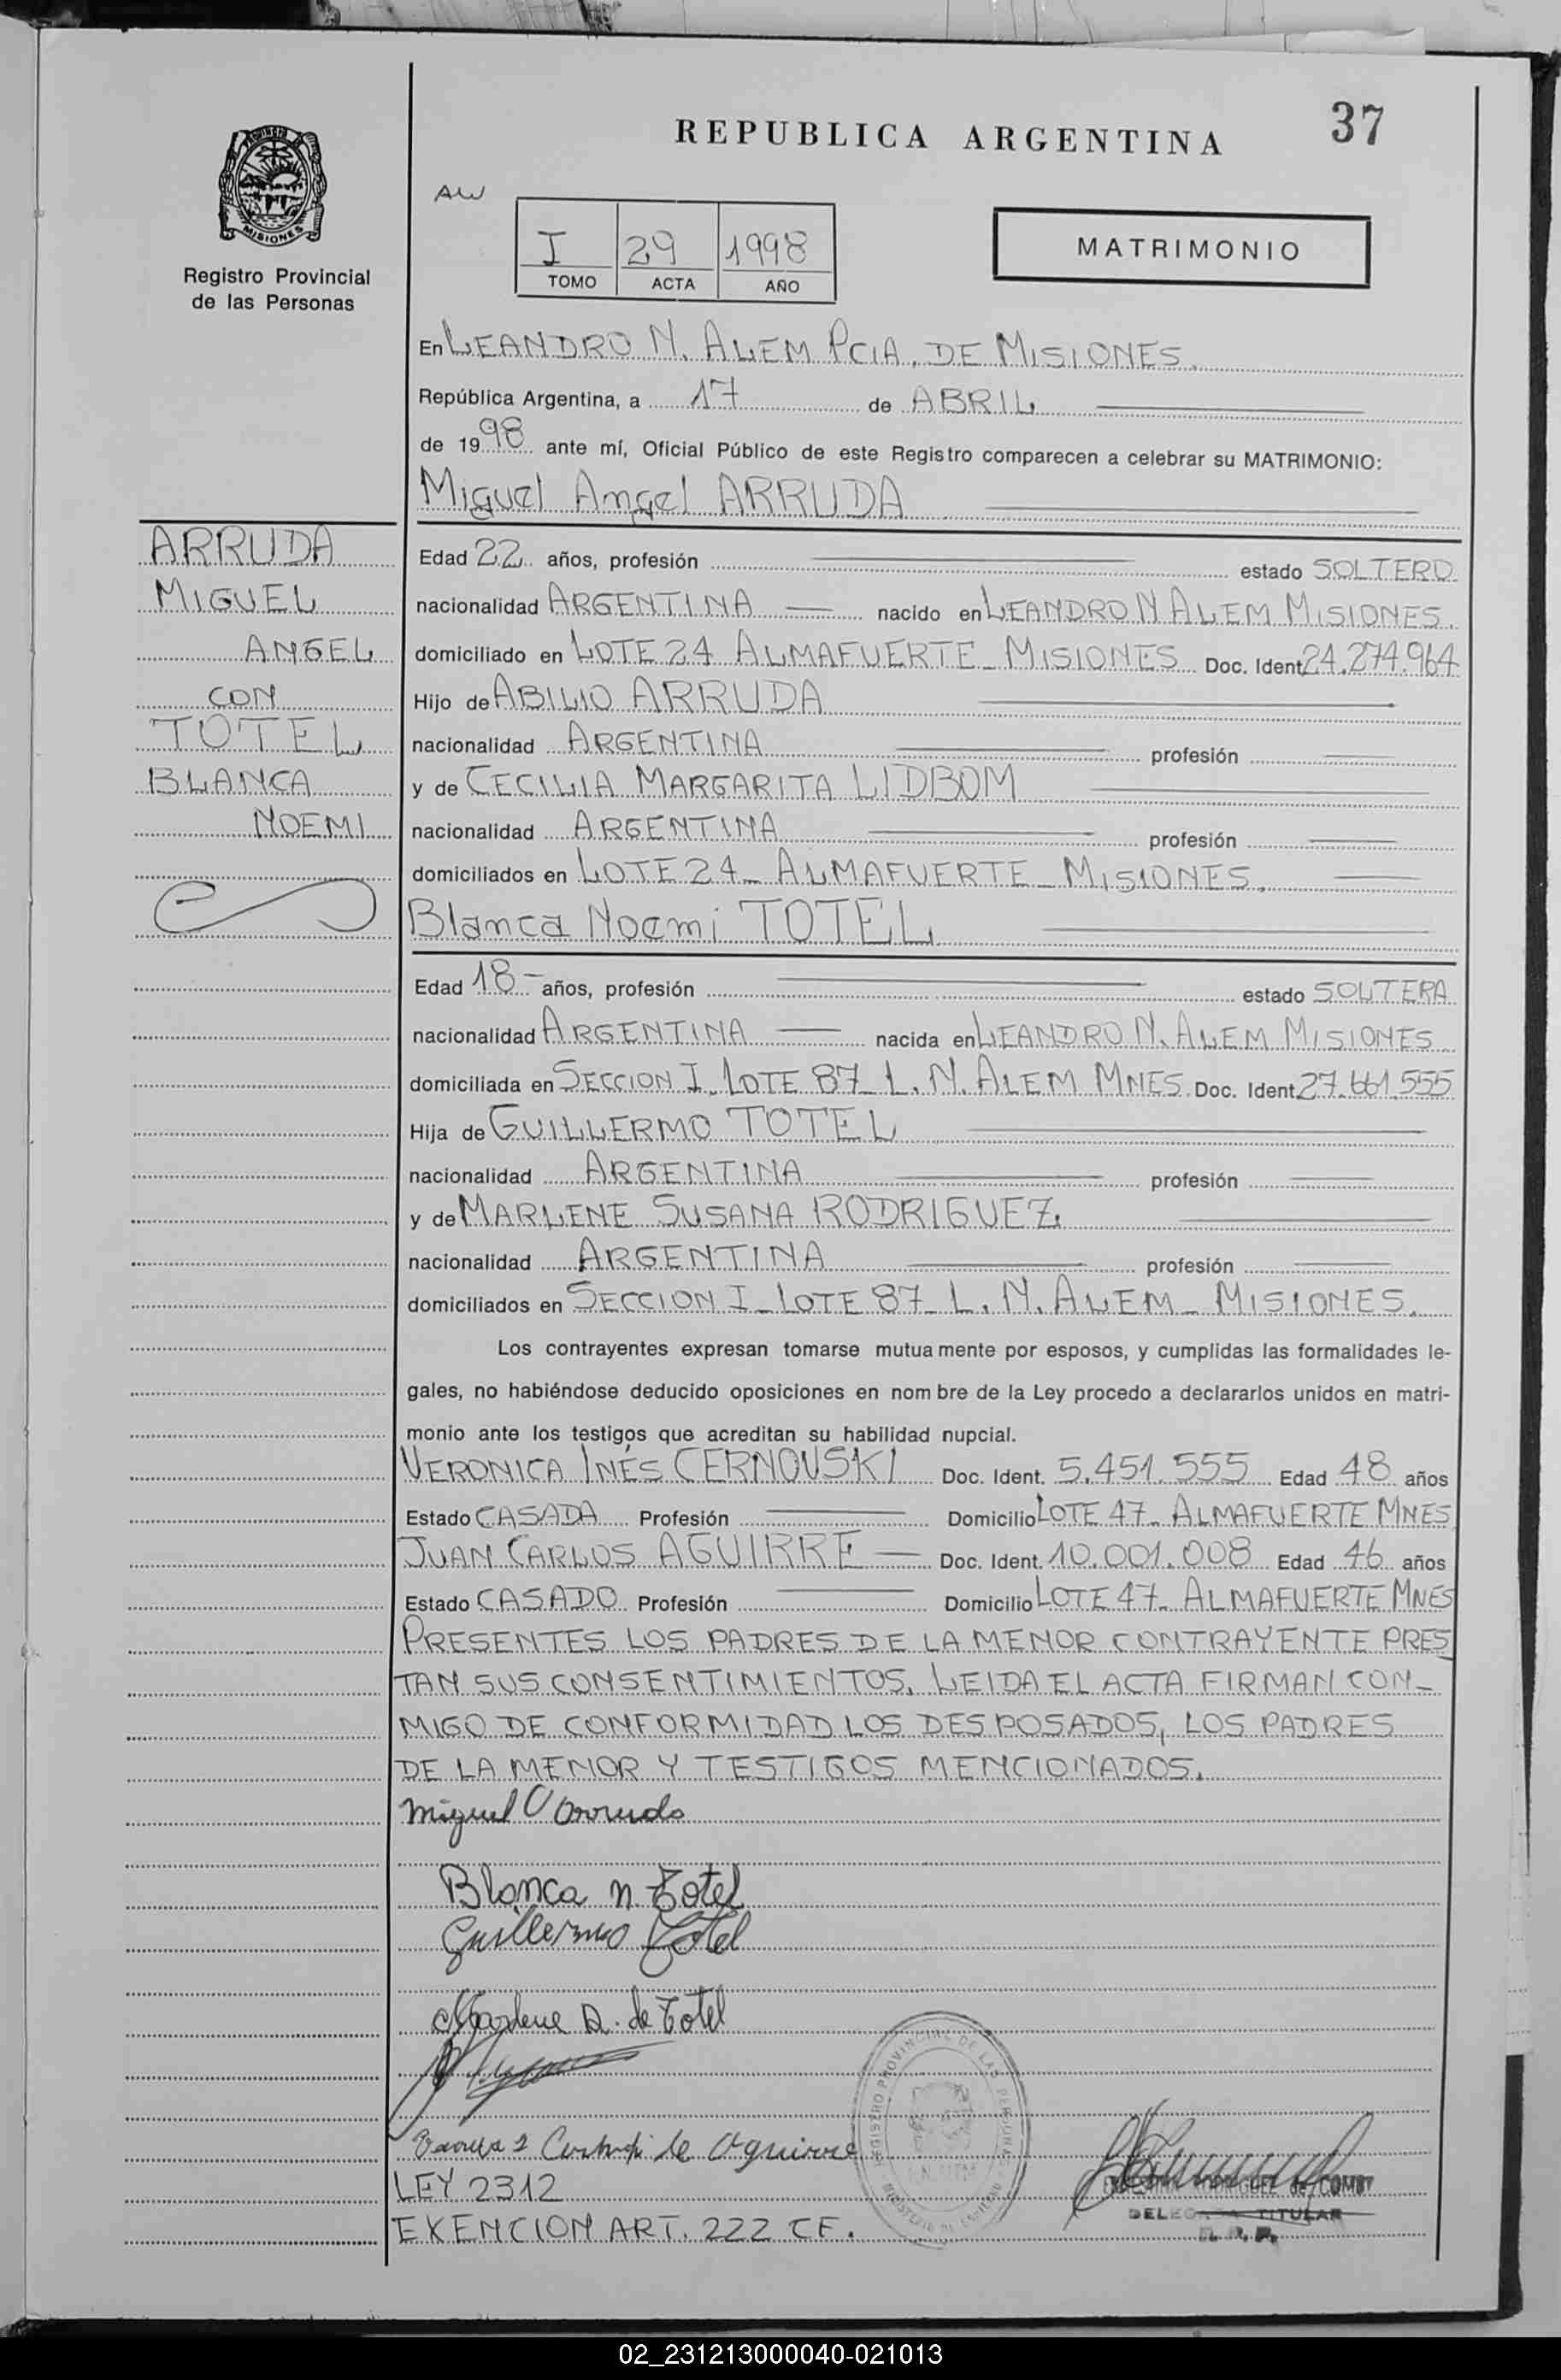 37
REPUBLICA ARGENTINA
MISIONES
Registro Provincial
de las Personas
AW
I 29 1998
TOMO ACTA AÑO
MATRIMONIO
En LEANDRO N. ALEM PCIA. DE MISIONES.
República Argentina, a 17 de ABRIL
de 1998 ante mí, Oficial Público de este Registro comparecen a celebrar su MATRIMONIO:
Miguel Angel ARRUDA
ARRUDA
MIGUEL
ANGEL
CON
TOTEL
BLANCA
NOEMI
Edad 22 años, profesión estado SOLTERO
nacionalidad ARGENTINA nacido en LEANDRO N ALEM MISIONES.
domiciliado en LOTE 24 ALMAFUERTE - MISIONES Doc. Ident. 24.274.964
Hijo de ABILIO ARRUDA
nacionalidad ARGENTINA profesión
y de CECILIA MARGARITA LIDBOM
nacionalidad ARGENTINA profesión
domiciliados en LOTE 24 - ALMAFUERTE - MISIONES.
Blanca Noemi TOTEL
Edad 18 - años, profesión estado SOLTERA
nacionalidad ARGENTINA nacida en LEANDRO N. ALEM MISIONES
domiciliada en SECCION I - LOTE 87 - L. N. ALEM MNES. Doc. Ident. 27.661.555
Hija de GUILLERMO TOTEL
nacionalidad ARGENTINA profesión
y de MARLENE SUSANA RODRIGUEZ.
nacionalidad ARGENTINA profesión
domiciliados en SECCION I - LOTE 87 - L. N. ALEM - MISIONES.
Los contrayentes expresan tomarse mutuamente por esposos, y cumplidas las formalidades le-
gales, no habiéndose deducido oposiciones en nombre de la Ley procedo a declararlos unidos en matri-
monio ante los testigos que acreditan su habilidad nupcial.
VERONICA INÉS CERNOVSKI Doc. Ident. 5.451.555 Edad 48 años
Estado CASADA Profesión Domicilio LOTE 47 - ALMAFUERTE MNES
JUAN CARLOS AGUIRRE - Doc. Ident. 10.001.008 Edad 46 años
Estado CASADO Profesión Domicilio LOTE 47 - ALMAFUERTE MNES
PRESENTES LOS PADRES DE LA MENOR CONTRAYENTE PRES
TAN SUS CONSENTIMIENTOS. LEIDA EL ACTA FIRMAN CON-
MIGO DE CONFORMIDAD LOS DESPOSADOS, LOS PADRES
DE LA MENOR Y TESTIGOS MENCIONADOS.
Miguel A Arruda
Blanca N. Totel
Guillermo Totel
Marlene R. de Totel
de Aguirre
REGISTRO PROVINCIAL DE LAS PERSONAS
RODRIGUEZ de COMBY
TITULAR
LEY 2312
EXENCION ART. 222 CF.
02_231213000040-021013